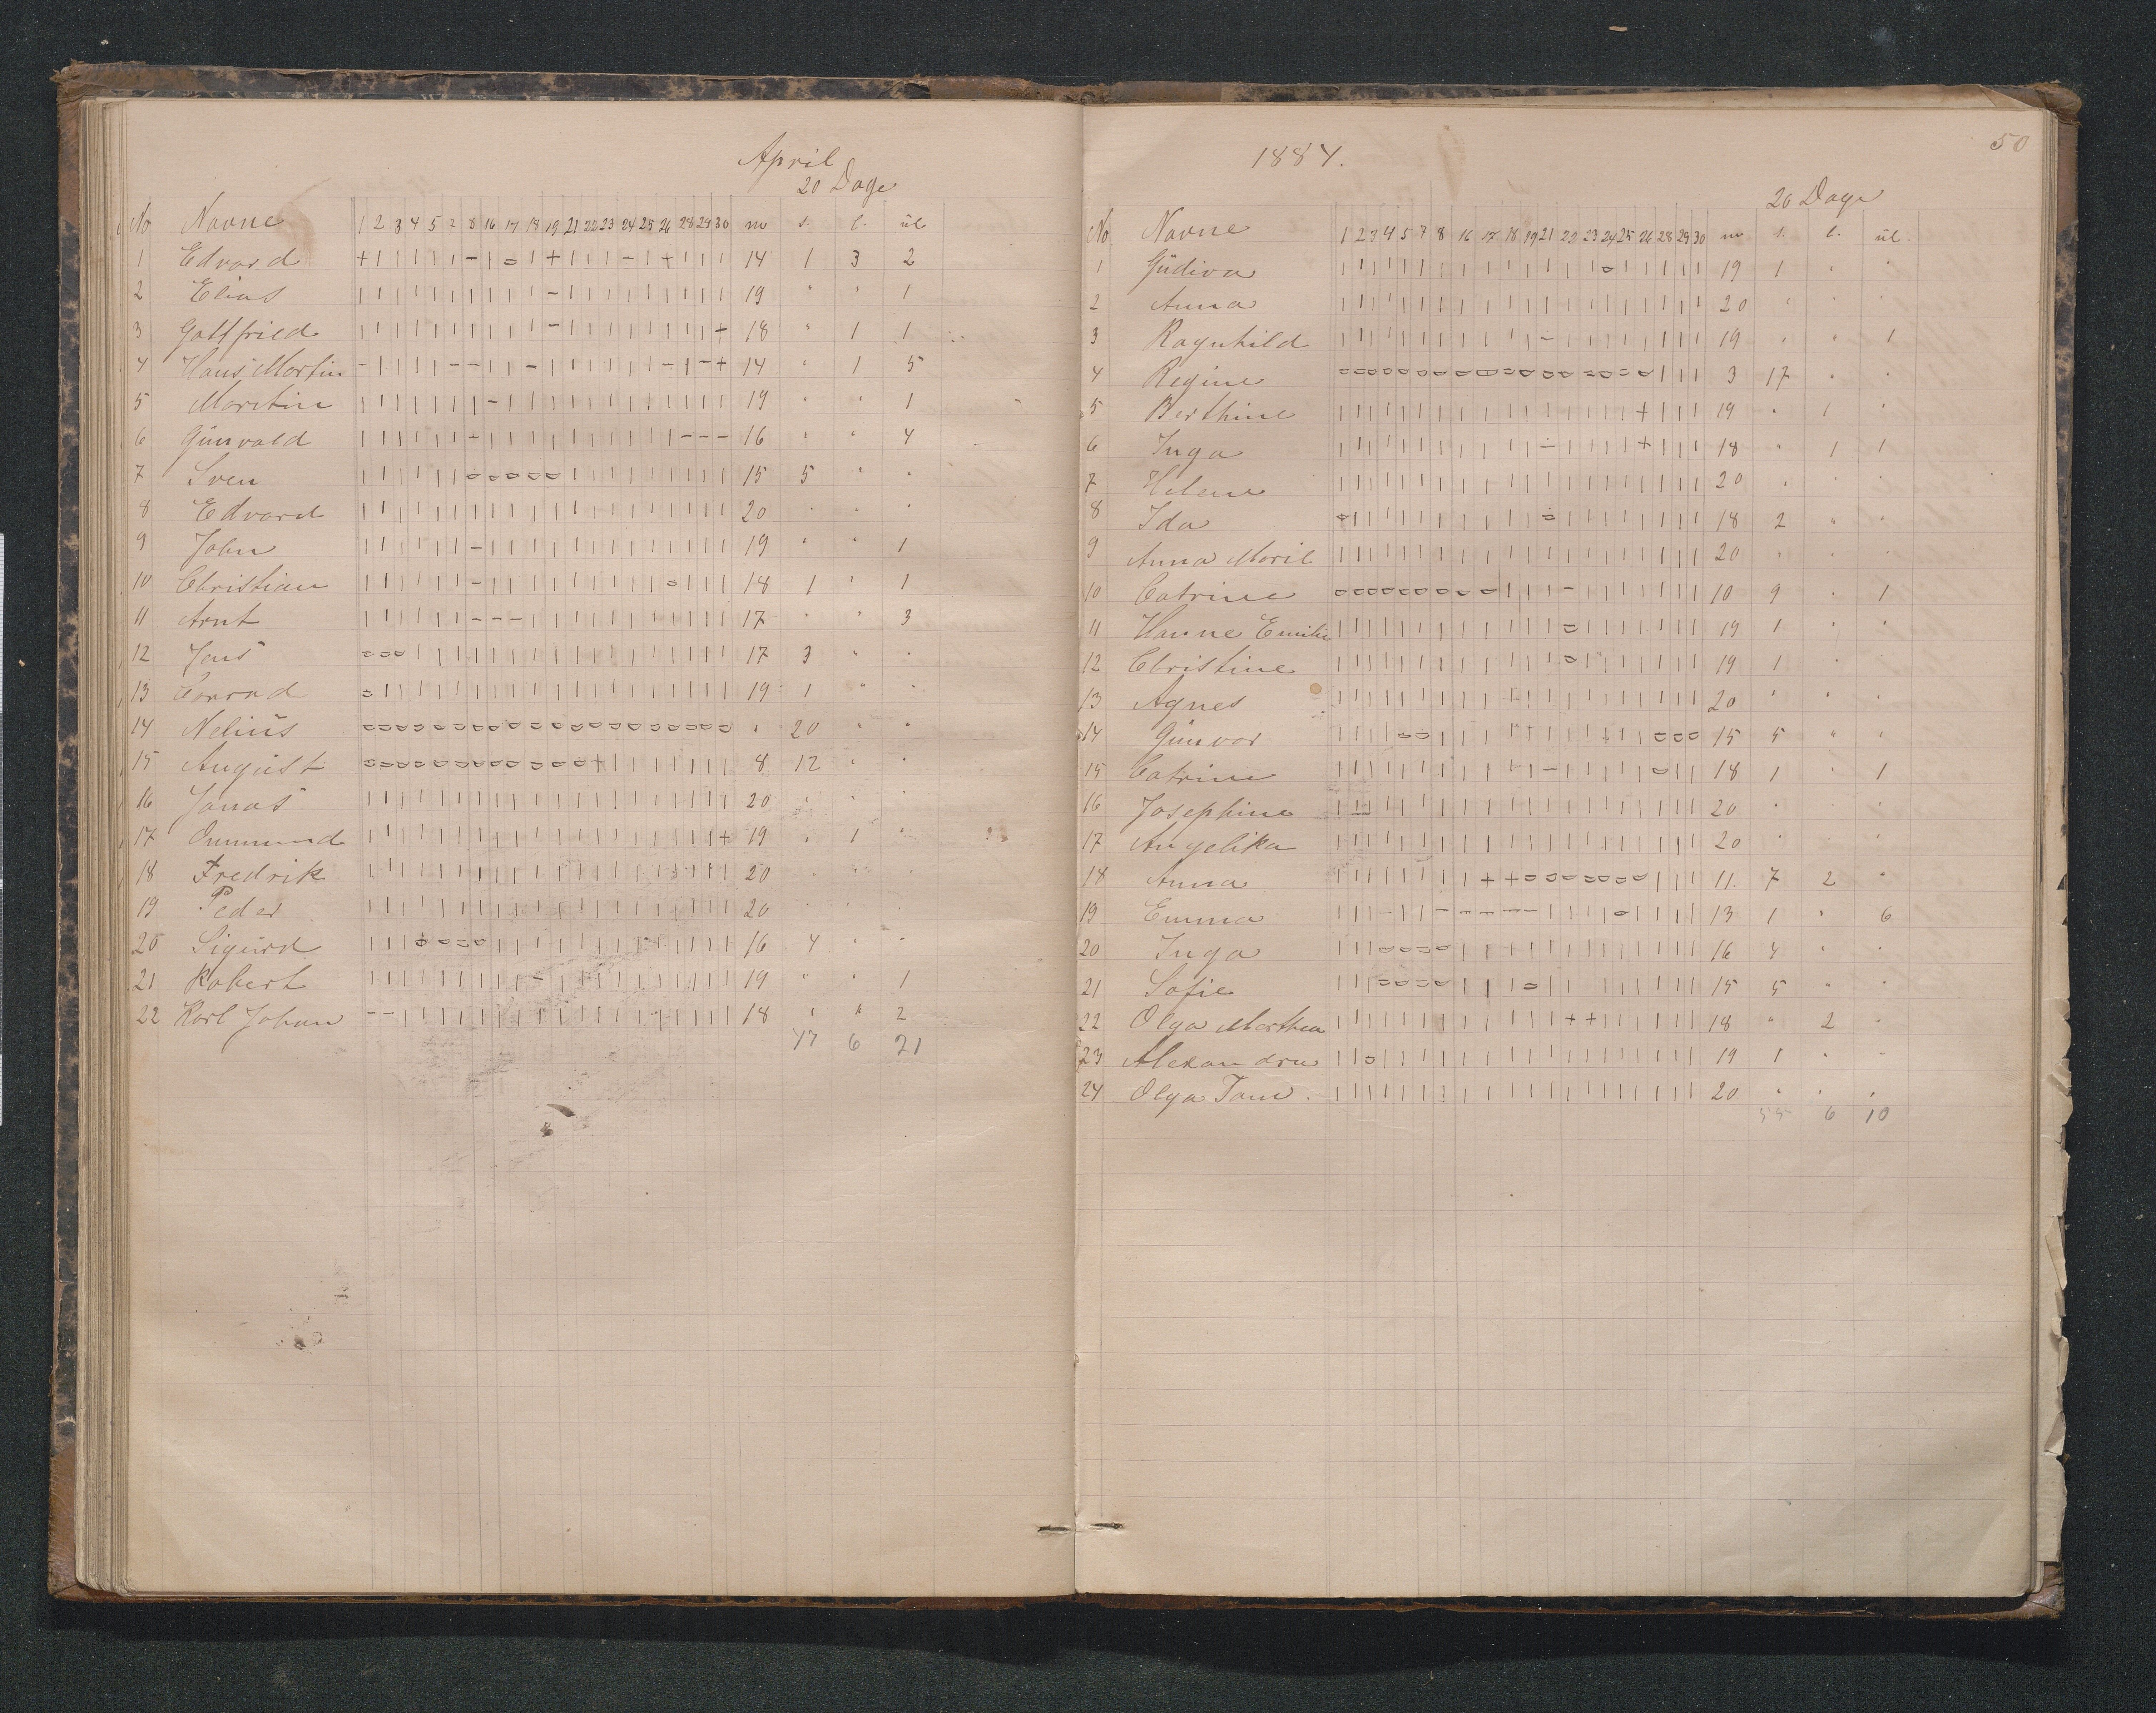 April
20 Dage
No Navne 1 2 3 4 5 7 8 16 17 18 19 21 22 23 24 25 26 28 29 30 m s. l. ul
1 Edvard + | | | | | - | o | + | | | - | + | | | 14 1 3 2
2 Elias | | | | | | | | | | - | | | | | | | | | 19 " " 1
3 Gottfried | | | | | | | | | | - | | | | | | | | + 18 " 1 1
4 Hans Martin - | | | | - - | | - | | | | | | - | - + 14 " 1 5
5 Martin | | | | | | | - | | | | | | | | | | | | 19 " " 1
6 Gunvald | | | | | | - | | | | | | | | | | - - - 16 " " 4
7 Sven | | | | | | o o o o o | | | | | | | | | 15 5 " "
8 Edvard | | | | | | | | | | | | | | | | | | | | 20 " " "
9 John | | | | | | - | | | | | | | | | | | | | 19 " " 1
10 Christian | | | | | | - | | | | | | | | | o | | | 18 1 " 1
11 Arnt | | | | | | - - - | | | | | | | | | | | 17 " " 3
12 Jens o o o | | | | | | | | | | | | | | | | | 17 3 " "
13 Conrad o | | | | | | | | | | | | | | | | | | | 19 1 " "
14 Nelius o o o o o o o o o o o o o o o o o o o o " 20 " "
15 August o o o o o o o o o o o o + | | | | | | | 8 12 " "
16 Jonas | | | | | | | | | | | | | | | | | | | | 20 " " "
17 Ommund | | | | | | | | | | | | | | | | | | | + 19 " 1 "
18 Fredrik | | | | | | | | | | | | | | | | | | | | 20 " " "
19 Peder | | | | | | | | | | | | | | | | | | | | 20 " " "
20 Sigurd | | | o o o o | | | | | | | | | | | | | 16 4 " "
21 Robert | | | | | | | | | - | | | | | | | | | | 19 " " 1
22 Karl Johan - - | | | | | | | | | | | | | | | | | | 18 " " 2
47 6 21
1884.
50
20 Dage
No Navne 1 2 3 4 5 7 8 16 17 18 19 21 22 23 24 25 26 28 29 30 m s. l. ul.
1 Gudiva | | | | | | | | | | | | | | o | | | | | 19 1 " "
2 Anna | | | | | | | | | | | | | | | | | | | | 20 " " "
3 Ragnhild | | | | | | | | | | | - | | | | | | | | 19 " " 1
4 Regine o o o o o o o o o o o o o o o o o | | | 3 17 " "
5 Berthine | | | | | | | | | | | | | | | | + | | | 19 " 1 "
6 Inga | | | | | | | | | | | - | | | | + | | | 18 " 1 1
7 Helene | | | | | | | | | | | | | | | | | | | | 20 " " "
8 Ida o | | | | | | | | | | o | | | | | | | | 18 2 " "
9 Anna Marie | | | | | | | | | | | | | | | | | | | | 20 " " "
10 Catrine o o o o o o o o o | | | - | | | | | | | 10 9 " 1
11 Hanne Emilie | | | | | | | | | | | | o | | | | | | | 19 1 " "
12 Christine | | | | | | | | | | | | o | | | | | | | 19 1 " "
13 Agnes | | | | | | | | | | | | | | | | | | | | 20 " " "
14 Gunvor | | | | o o | | | | | | | | | | | o o o 15 5 " "
15 Catrine | | | | | | | | | | | - | | | | | o | | 18 1 " 1
16 Josephine | | | | | | | | | | | | | | | | | | | | 20 " " "
17 Angelika | | | | | | | | | | | | | | | | | | | | 20 " " "
18 Anna | | | | | | | | + + o o o o o o o | | | 11. 7 2 "
19 Emma | | | - | | - - - - - | | | | o | | | | 13 1 " 6
20 Inga | | | o o o o | | | | | | | | | | | | | 16 4 " "
21 Sofie | | | o o o o | | | o | | | | | | | | | 15 5 " "
22 Olga Marthea | | | | | | | | | | | | + + | | | | | | 18 " 2 "
23 Alexandra | | o | | | | | | | | | | | | | | | | | 19 1 " "
24 Olga Tam. | | | | | | | | | | | | | | | | | | | | 20 " " "
55 6 10